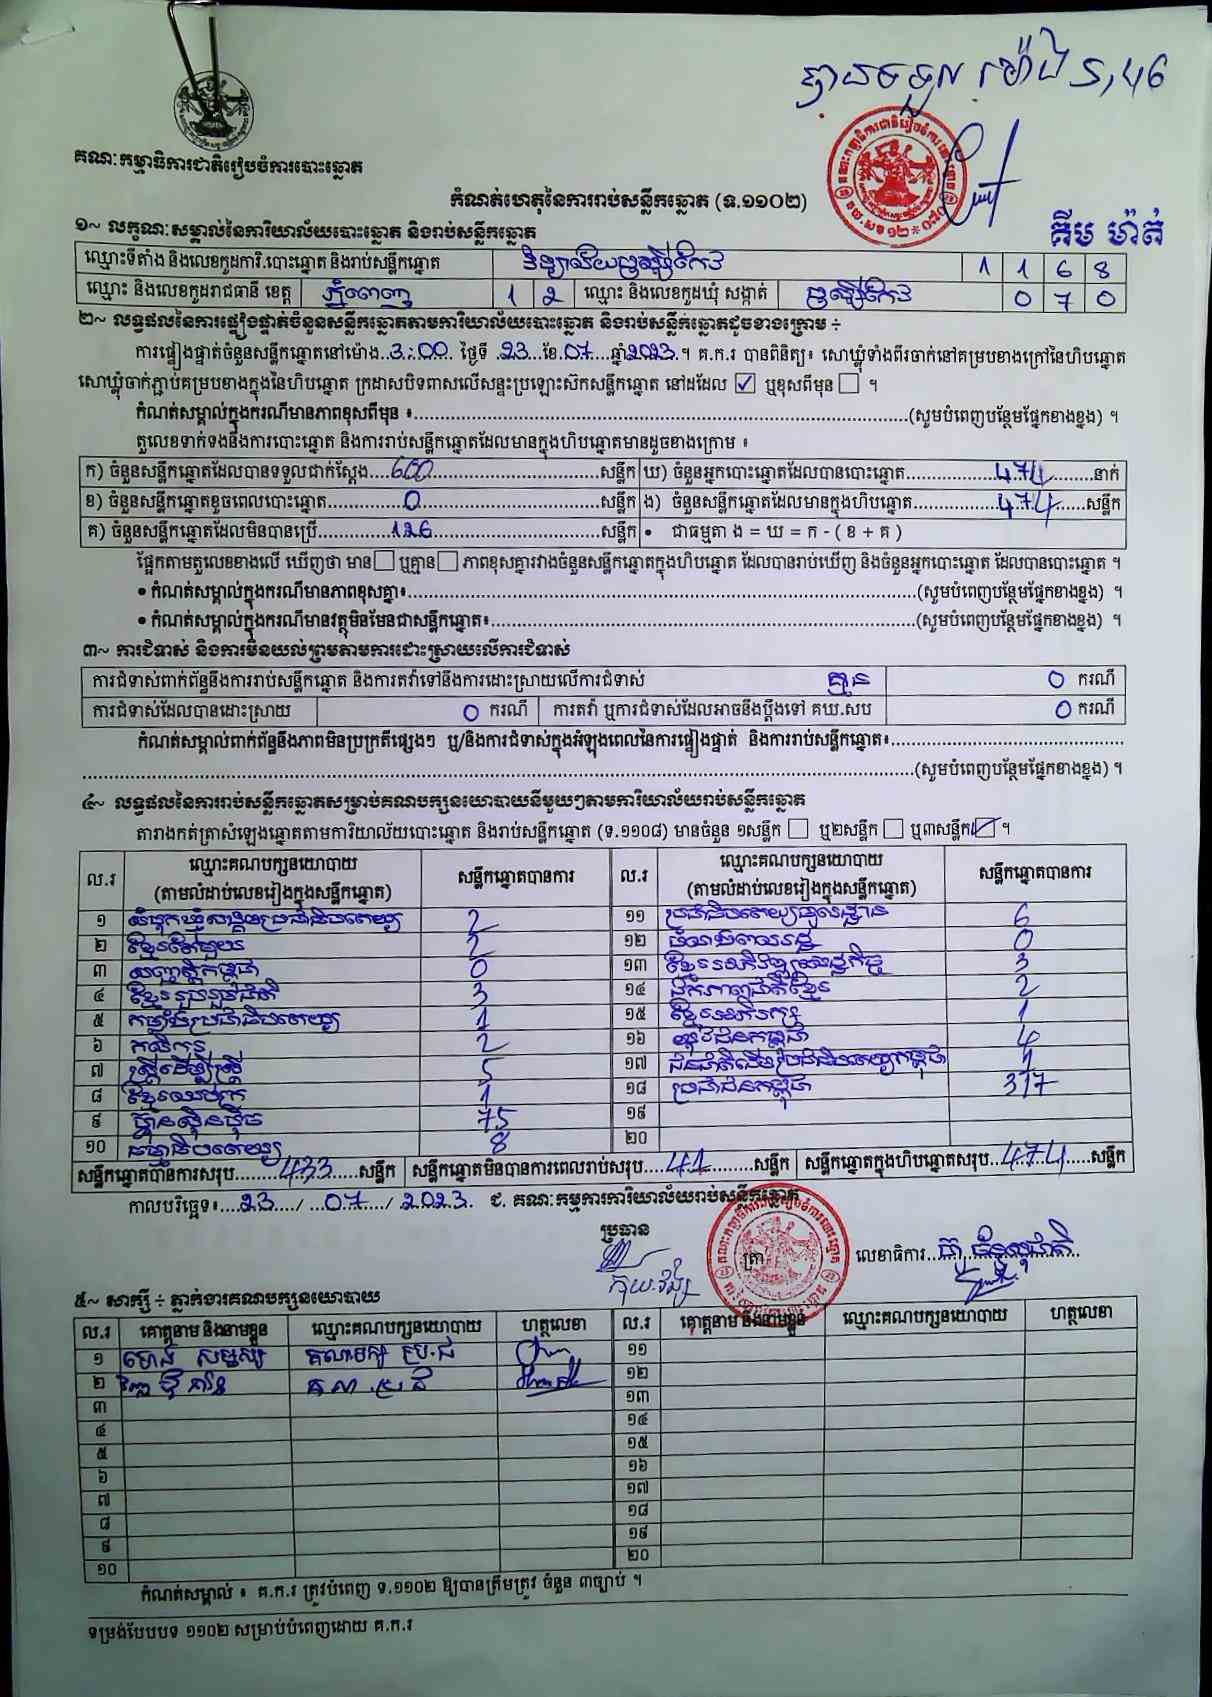 បានទទួល ម៉ោង 5,46
គណៈកម្មាធិការជាតិរៀបចំការបោះឆ្នោត
កំណត់ហេតុនៃការរាប់សន្លឹកឆ្នោត (ទ.១១០២)
គឹម ម៉ាត់
១~ លក្ខណៈសម្គាល់នៃការិយាល័យបោះឆ្នោត និងរាប់សន្លឹកឆ្នោត
ឈ្មោះទីតាំង និងលេខកូដការិ.បោះឆ្នោត និងរាប់សន្លឹកឆ្នោត វិទ្យាល័យឫស្សីកែវ 1 1 6 8
ឈ្មោះ និងលេខកូដរាជធានី ខេត្ត ភ្នំពេញ 1 2 ឈ្មោះ និងលេខកូដឃុំ សង្កាត់ ឫស្សីកែវ 0 7 0
២~ លទ្ធផលនៃការផ្ទៀងផ្ទាត់ចំនួនសន្លឹកឆ្នោតតាមការិយាល័យបោះឆ្នោត និងរាប់សន្លឹកឆ្នោតដូចខាងក្រោម ÷
ការផ្ទៀងផ្ទាត់ចំនួនសន្លឹកឆ្នោតនៅម៉ោង..3:00 ថ្ងៃទី .23...ខែ.07....ឆ្នាំ2023.។ គ.ក.រ បានពិនិត្យ៖ សោឃ្លុំទាំងពីរចាក់នៅគម្របខាងក្រៅនៃហិបឆ្នោត
សោឃ្លុំចាក់ភ្ជាប់គម្របខាងក្នុងនៃហិបឆ្នោត ក្រដាសបិទពាសលើសន្ទះប្រឡោះស៊កសន្លឹកឆ្នោត នៅដដែល ☑ ឬខុសពីមុន ☐ ។
កំណត់សម្គាល់ក្នុងករណីមានភាពខុសពីមុន ៖........(សូមបំពេញបន្ថែមផ្នែកខាងខ្នង) ។
តួលេខទាក់ទងនឹងការបោះឆ្នោត និងការរាប់សន្លឹកឆ្នោតដែលមានក្នុងហិបឆ្នោតមានដូចខាងក្រោម ៖
ក) ចំនួនសន្លឹកឆ្នោតដែលបានទទួលជាក់ស្តែង....600........សន្លឹក ឃ) ចំនួនអ្នកបោះឆ្នោតដែលបានបោះឆ្នោត........474........នាក់
ខ) ចំនួនសន្លឹកឆ្នោតខូចពេលបោះឆ្នោត........0........សន្លឹក ង) ចំនួនសន្លឹកឆ្នោតដែលមានក្នុងហិបឆ្នោត........474......សន្លឹក
គ) ចំនួនសន្លឹកឆ្នោតដែលមិនបានប្រើ........126........សន្លឹក • ជាធម្មតា ង = ឃ = ក - ( ខ + គ )
ផ្អែកតាមតួលេខខាងលើ ឃើញថា មាន☐ ឬគ្មាន☐ ភាពខុសគ្នារវាងចំនួនសន្លឹកឆ្នោតក្នុងហិបឆ្នោត ដែលបានរាប់ឃើញ និងចំនួនអ្នកបោះឆ្នោត ដែលបានបោះឆ្នោត ។
• កំណត់សម្គាល់ក្នុងករណីមានភាពខុសគ្នា៖........(សូមបំពេញបន្ថែមផ្នែកខាងខ្នង) ។
• កំណត់សម្គាល់ក្នុងករណីមានវត្ថុមិនមែនជាសន្លឹកឆ្នោត៖........(សូមបំពេញបន្ថែមផ្នែកខាងខ្នង) ។
៣~ ការជំទាស់ និងការមិនយល់ព្រមតាមការដោះស្រាយលើការជំទាស់
ការជំទាស់ពាក់ព័ន្ធនឹងការរាប់សន្លឹកឆ្នោត និងការតវ៉ាទៅនឹងការដោះស្រាយលើការជំទាស់ គ្មាន 0 ករណី
ការជំទាស់ដែលបានដោះស្រាយ 0 ករណី ការតវ៉ា ឬការជំទាស់ដែលអាចនឹងប្តឹងទៅ គឃ.សប 0 ករណី
កំណត់សម្គាល់ពាក់ព័ន្ធនឹងភាពមិនប្រក្រតីផ្សេងៗ ឬ/និងការជំទាស់ក្នុងអំឡុងពេលនៃការផ្ទៀងផ្ទាត់ និងការរាប់សន្លឹកឆ្នោត៖........
........(សូមបំពេញបន្ថែមផ្នែកខាងខ្នង) ។
៤~ លទ្ធផលនៃការរាប់សន្លឹកឆ្នោតសម្រាប់គណបក្សនយោបាយនីមួយៗតាមការិយាល័យរាប់សន្លឹកឆ្នោត
តារាងកត់ត្រាសំឡេងឆ្នោតតាមការិយាល័យបោះឆ្នោត និងរាប់សន្លឹកឆ្នោត (ទ.១១០៨) មានចំនួន ១សន្លឹក ☐ ឬ២សន្លឹក ☐ ឬ៣សន្លឹក ☑ ។
ល.រ ឈ្មោះគណបក្សនយោបាយ (តាមលំដាប់លេខរៀងក្នុងសន្លឹកឆ្នោត) សន្លឹកឆ្នោតបានការ ល.រ ឈ្មោះគណបក្សនយោបាយ (តាមលំដាប់លេខរៀងក្នុងសន្លឹកឆ្នោត) សន្លឹកឆ្នោតបានការ
១ ឃ្មុំសង្គមប្រជាធិបតេយ្យ 2 ១១ ប្រជាធិបតេយ្យមូលដ្ឋាន 6
២ ខ្មែរតែមួយ 2 ១២ 0
៣ សញ្ជាតិកម្ពុជា 0 ១៣ ខ្មែរអភិវឌ្ឍន៍សេដ្ឋកិច្ច 3
៤ ខ្មែររួបរួមជាតិ 3 ១៤ ឯកភាពជាតិខ្មែរ 2
៥ កម្លាំងប្រជាធិបតេយ្យ 1 ១៥ ខ្មែរអភិរក្ស 1
៦ កសិករ 2 ១៦ យុវជនកម្ពុជា 4
៧ ស្ត្រីដើម្បីស្ត្រី 5 ១៧ ជនជាតិដើមប្រជាធិបតេយ្យកម្ពុជា 1
៨ ខ្មែរឈប់ក្រ 1 ១៨ ប្រជាជនកម្ពុជា 317
៩ ហ៊្វុនស៊ិនប៉ិច 75 ១៩
១០ ធម្មាធិបតេយ្យ 8 ២០
សន្លឹកឆ្នោតបានការសរុប........433......សន្លឹក សន្លឹកឆ្នោតមិនបានការពេលរាប់សរុប....41........សន្លឹក សន្លឹកឆ្នោតក្នុងហិបឆ្នោតសរុប...474.....សន្លឹក
កាលបរិច្ឆេទ៖....23..../ ...07..../ 2023. ជ. គណៈកម្មការការិយាល័យរាប់សន្លឹកឆ្នោត
ប្រធាន
ត្រា លេខាធិការ
៥~ សាក្សី ÷ ភ្នាក់ងារគណបក្សនយោបាយ
ល.រ គោត្តនាម និងនាមខ្លួន ឈ្មោះគណបក្សនយោបាយ ហត្ថលេខា ល.រ គោត្តនាម និងនាមខ្លួន ឈ្មោះគណបក្សនយោបាយ ហត្ថលេខា
១ គណបក្ស ប្រ.ជ ១១
២ គណ.ប្រ ជ ១២
៣ ១៣
៤ ១៤
៥ ១៥
៦ ១៦
៧ ១៧
៨ ១៨
៩ ១៩
១០ ២០
កំណត់សម្គាល់ ៖ គ.ក.រ ត្រូវបំពេញ ទ.១១០២ ឱ្យបានត្រឹមត្រូវ ចំនួន ៣ច្បាប់ ។
ទម្រង់បែបបទ ១១០២ សម្រាប់បំពេញដោយ គ.ក.រ